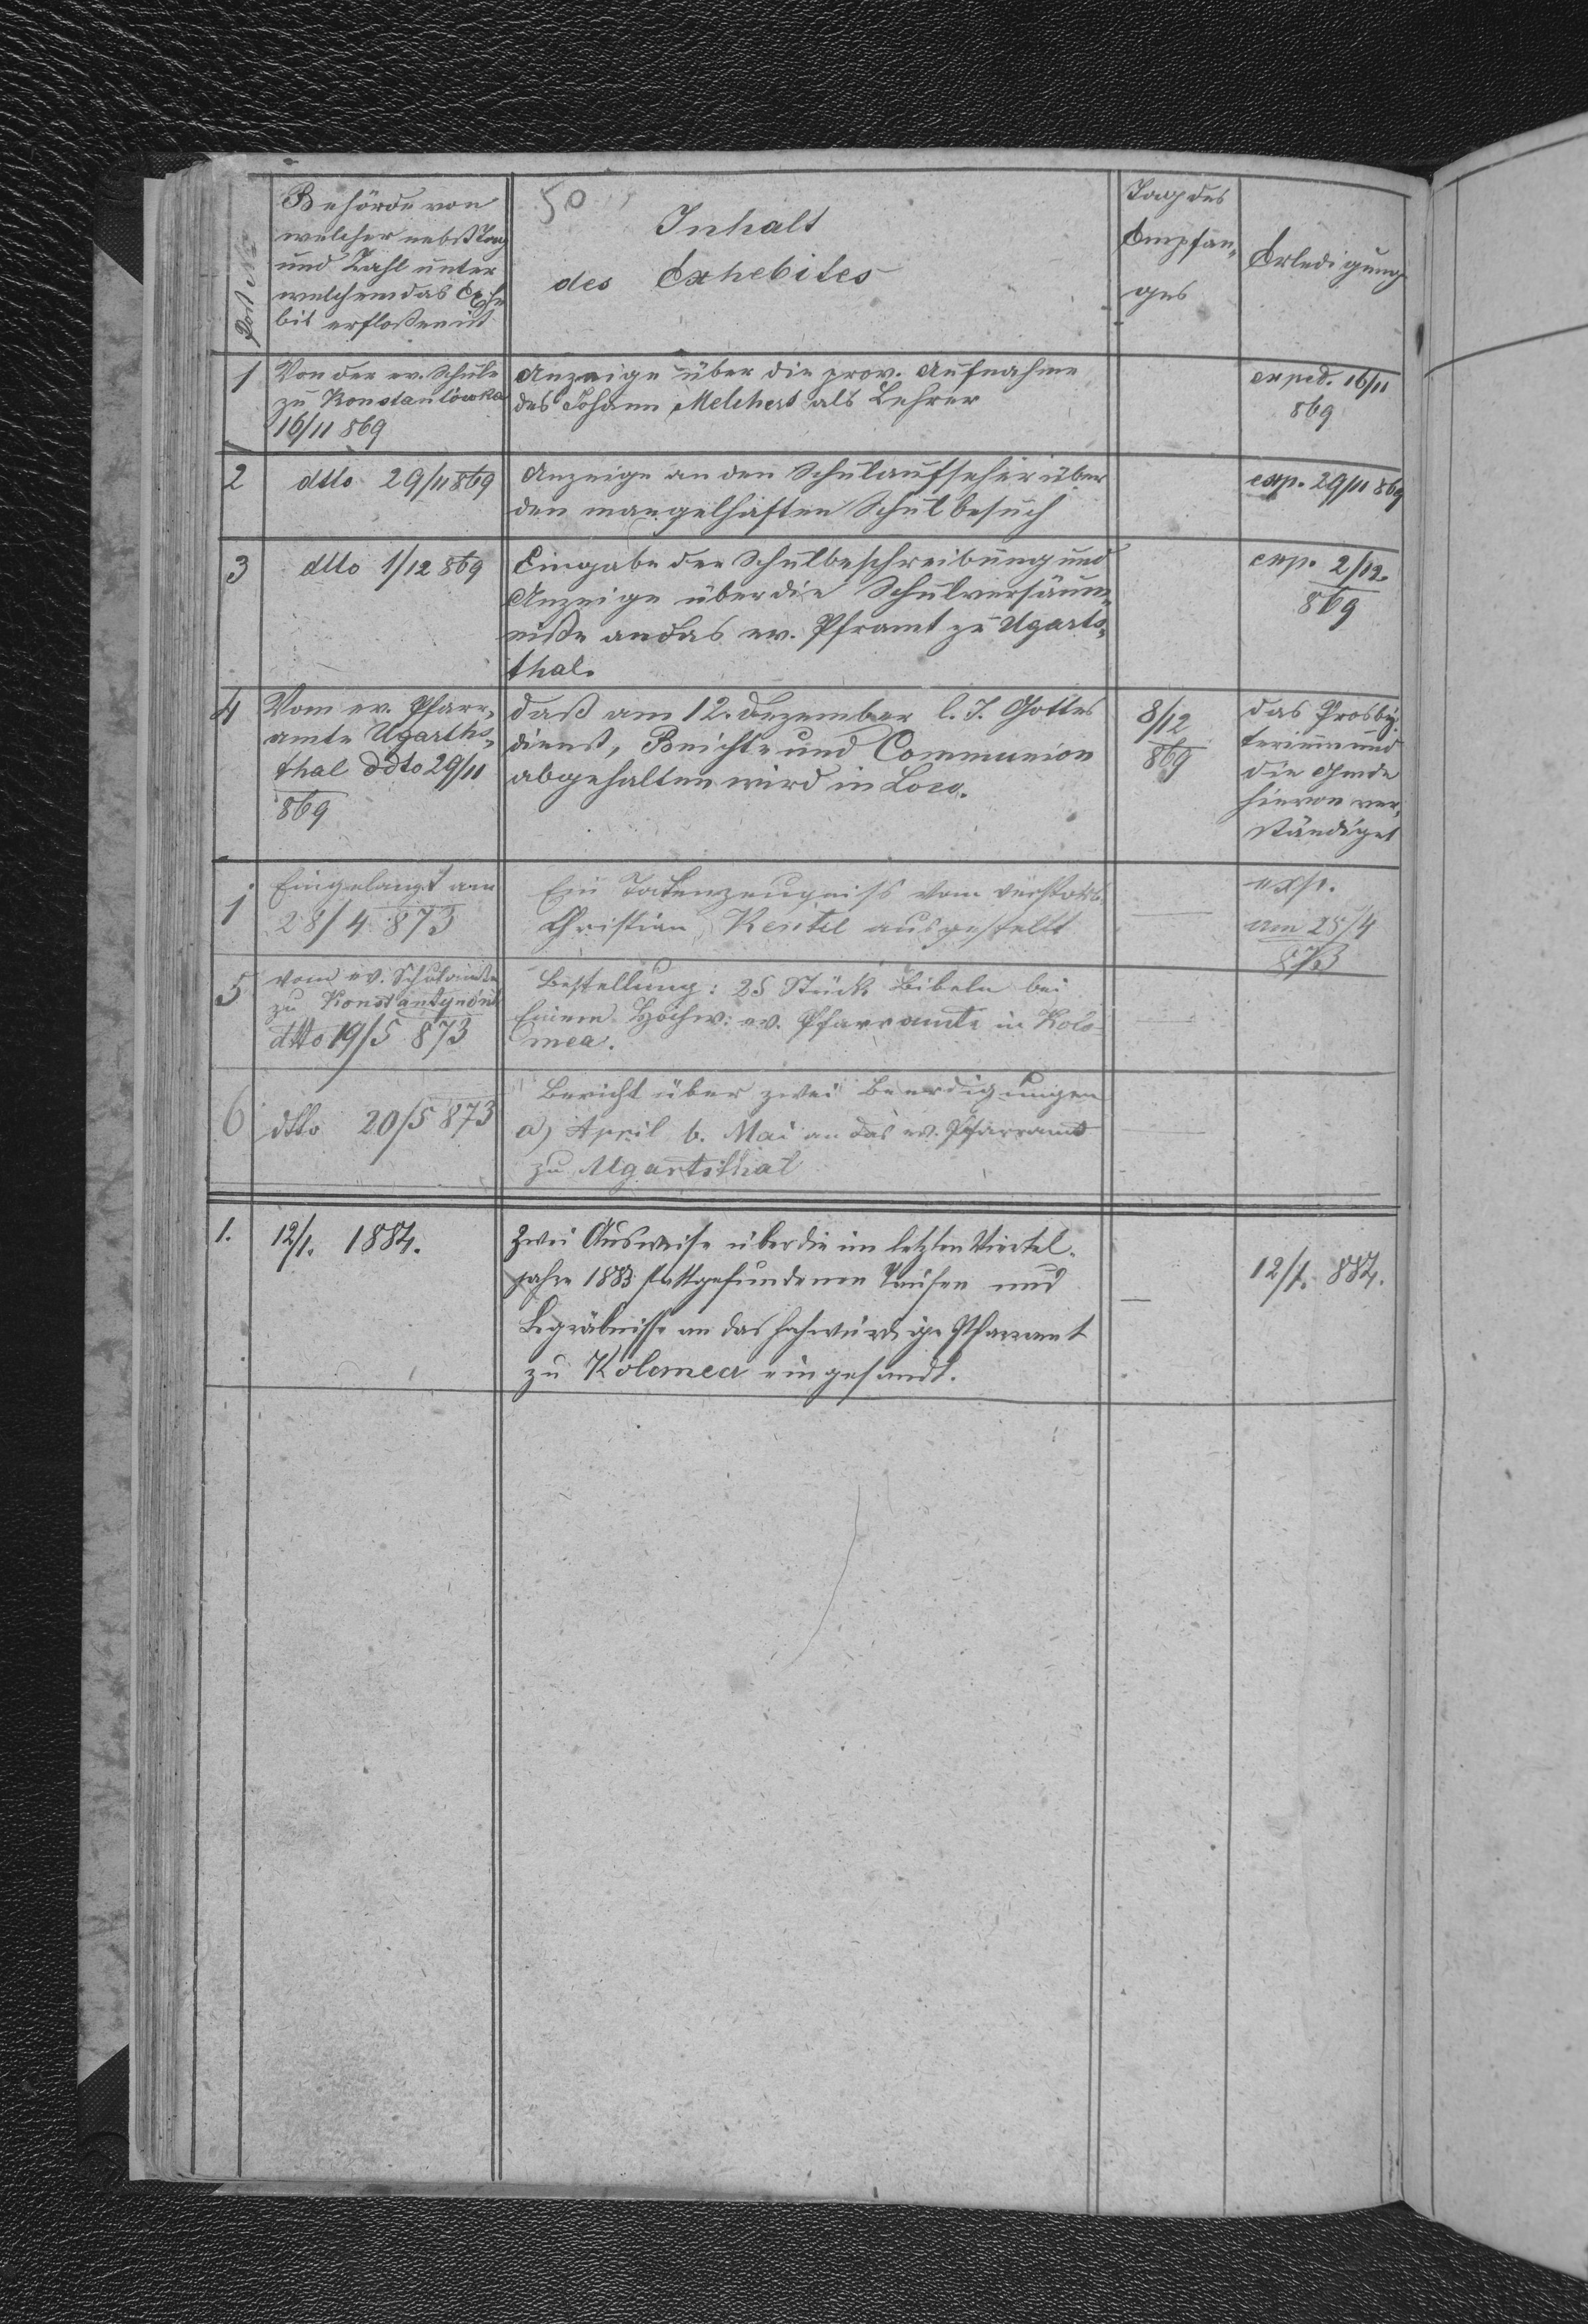 50
Post No
Behörde von
welcher nebst Tag
und Zahl unter
welchem das Exhe
bit erfloßen ist
Inhalt
des Exhebites
Tag des
Empfan-
ges
Erledigung
1
Von der ev. Schule
zu Konstantówka
16/11 869
Anzeige über die prov. Aufnahme
des Johann Melchert als Lehrer
exped. 16/11
869
2
dtto 29/11 869
Anzeige an den Schulaufseher über
den mangelhaften Schulbesuch
exp. 29/11 869
3
dtto 1/12 869
Eingabe der Schulbeschreibung und
Anzeige über die Schulversäum-
niße an das ev. Pframt zu Ugarts-
thal.
exp. 2/12.
869
4
Vom ev. Pfarr-
amte Ugarths-
thal ddto 29/11
869
daß am 12. Dezember l. J. Gottes
dienst, Beichte und Communion
abgehalten wird in Loco.
8/12
869
das Prosby-
terium und
die Gmde
hievon ver-
ständiget
1
Eingelangt am
28/4 873
Ein Totenzeugniss vom verstorb.
Christian Rentel ausgestellt
exp.
am 28/4
873
5
vom ev. Schulamte
zu
dtto 19/5 873
Bestellung: 25 Stück Bibeln bei
Einem Hochw: ev. Pfarramte in Kolo-
mea.
6
dtto 20/5 873
Bericht über zwei Beerdigungen
a) April b. Mai an das ev. Pfarramt
zu Ugartsthal
1.
12/1. 1884.
Zwei Ausweise über die im letzten Viertel-
jahre 1883 stattgefundenen Taufen und
Begräbnisse an das hochwürdige Pfarramt
zu Kolomea eingesandt.
12/1. 884.